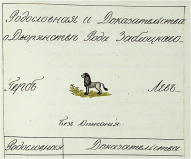 Родословная и Доказательства
о Дворянстве Рода Заблоцкаго.
Гербъ Левъ
безъ Описания
Родословная Доказательства